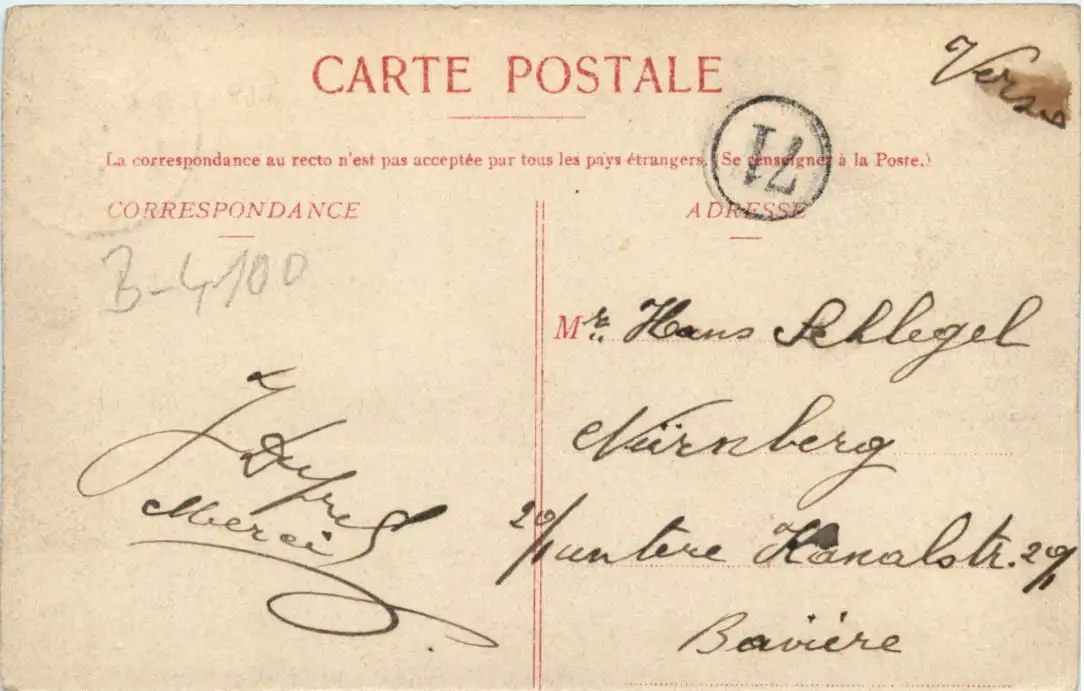 CARTE POSTALE
Verso
La correspondance au recto n'est pas acceptée par tous les pays étrangers. (Se renseigner à la Poste.)
71
CORRESPONDANCE
ADRESSE
B-4100
Mr. Hans Schlegel
Nürnberg
29/1 untere Kanalstr. 29/1
Bavière
Merci